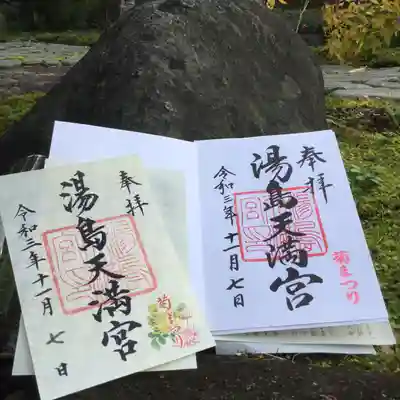 奉拝
湯島天満宮
令和三年十一月七日
菊まつり
奉拝
湯島天満宮
令和三年十一月七日
菊まつり